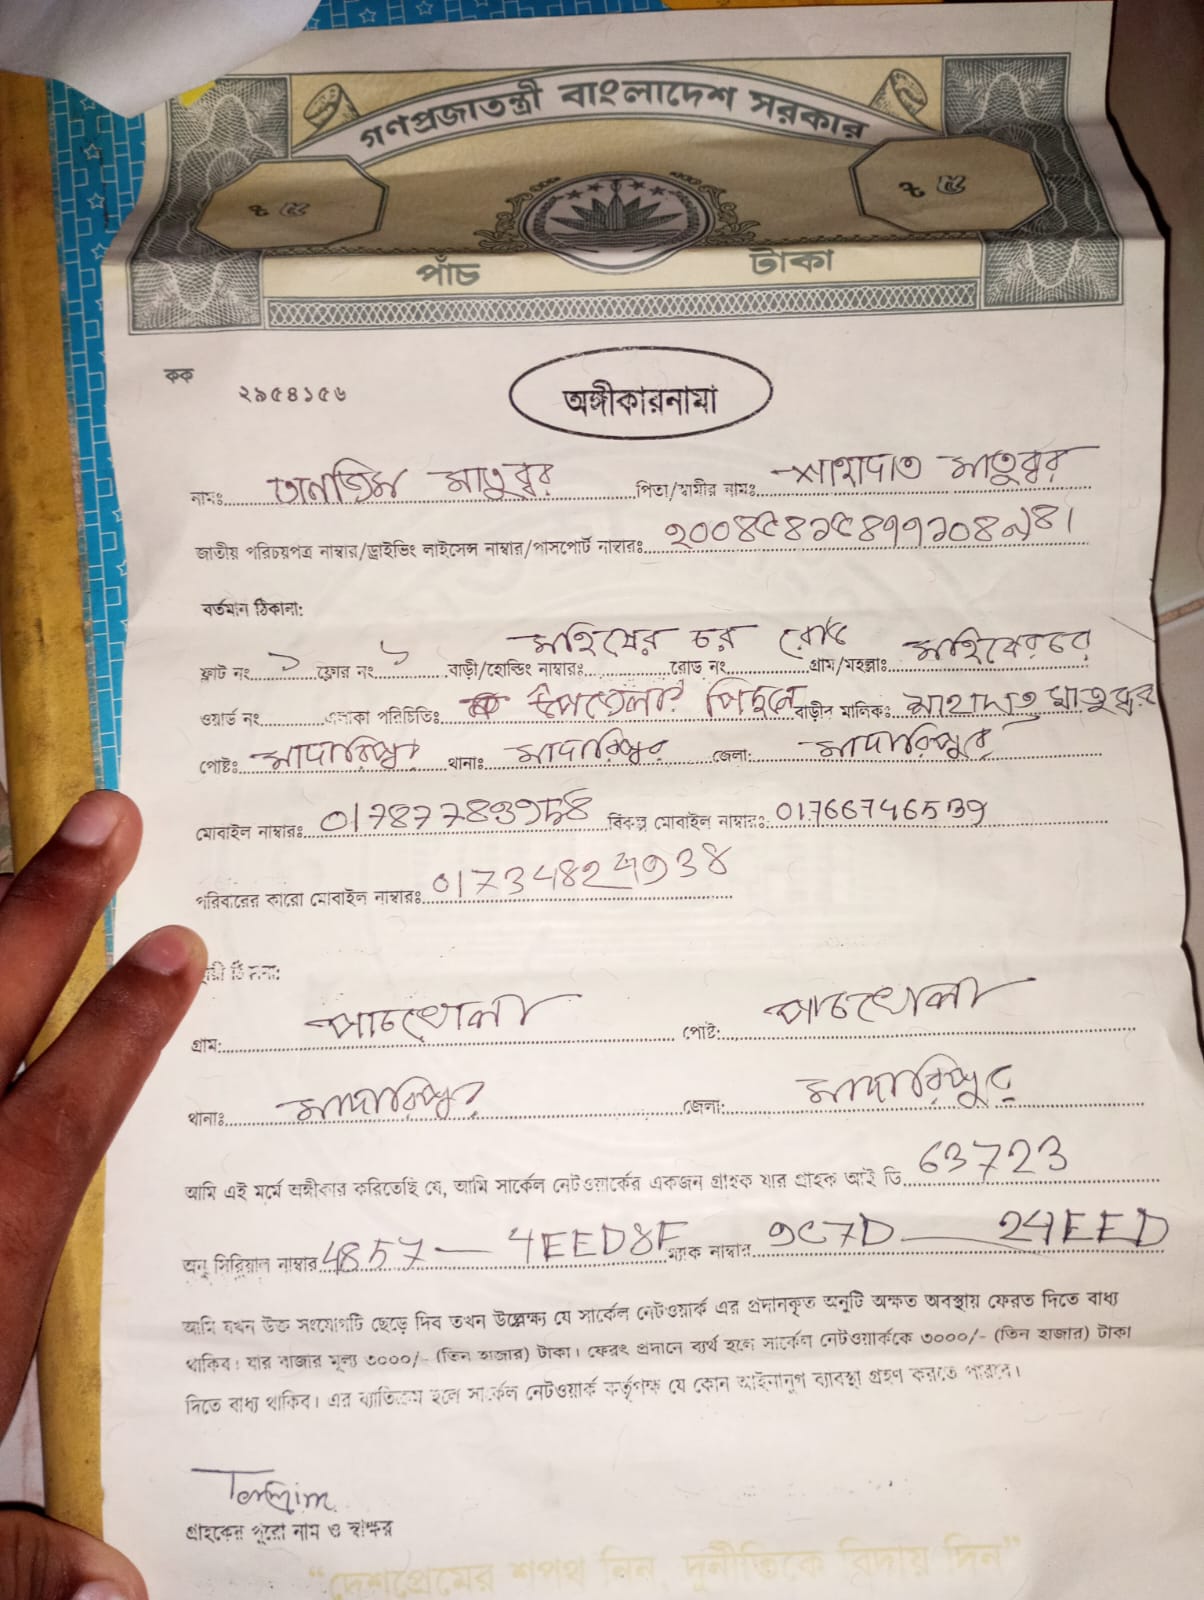 গণপ্রজাতন্ত্রী বাংলাদেশ সরকার
৳ ৫ ৳ ৫
পাঁচ টাকা
কক ২৯৫৪১৫৬
অঙ্গীকারনামা
নামঃ তানজিম মাতুব্বর পিতা/স্বামীর নামঃ শাহাদাত মাতুব্বর
জাতীয় পরিচয়পত্র নাম্বার/ড্রাইভিং লাইসেন্স নাম্বার/পাসপোর্ট নাম্বারঃ
বর্তমান ঠিকানা:
ফ্লাট নং ১ ফ্লোর নং ১ বাড়ী/হোল্ডিং নাম্বারঃ মহিষের চর রোড নং রোড গ্রাম/মহল্লাঃ মহিষেরচর
ওয়ার্ড নং এলাকা পরিচিতিঃ উপজেলার পিছনে বাড়ীর মালিকঃ শাহাদাত মাতুব্বর
পোষ্টঃ মাদারিপুর থানাঃ মাদারিপুর জেলা: মাদারিপুর
মোবাইল নাম্বারঃ বিকল্প মোবাইল নাম্বারঃ 01766746539
পরিবারের কারো মোবাইল নাম্বারঃ
স্থায়ী ঠিকানা:
গ্রাম: পাচখোলা পোষ্ট: পাচখোলা
থানাঃ মাদারিপুর জেলা: মাদারিপুর
আমি এই মর্মে অঙ্গীকার করিতেছি যে, আমি সার্কেল নেটওয়ার্কের একজন গ্রাহক যার গ্রাহক আই ডি 63723
অনু সিরিয়াল নাম্বার 4857 — 4EED8F ম্যাক নাম্বার 9C7D — 24EED
আমি যখন উক্ত সংযোগটি ছেড়ে দিব তখন উল্লেক্ষ্য যে সার্কেল নেটওয়ার্ক এর প্রদানকৃত অনুটি অক্ষত অবস্থায় ফেরত দিতে বাধ্য
থাকিব। যার বাজার মূল্য ৩০০০/- (তিন হাজার) টাকা। ফেরৎ প্রদানে ব্যর্থ হলে সার্কেল নেটওয়ার্ককে ৩০০০/- (তিন হাজার) টাকা
দিতে বাধ্য থাকিব। এর ব্যতিক্রম হলে সার্কেল নেটওয়ার্ক কর্তৃপক্ষ যে কোন আইনানুগ ব্যাবস্থা গ্রহণ করতে পারবে।
গ্রাহকের পুরো নাম ও স্বাক্ষর
“দেশপ্রেমের শপথ নিন, দুর্নীতিকে বিদায় দিন”